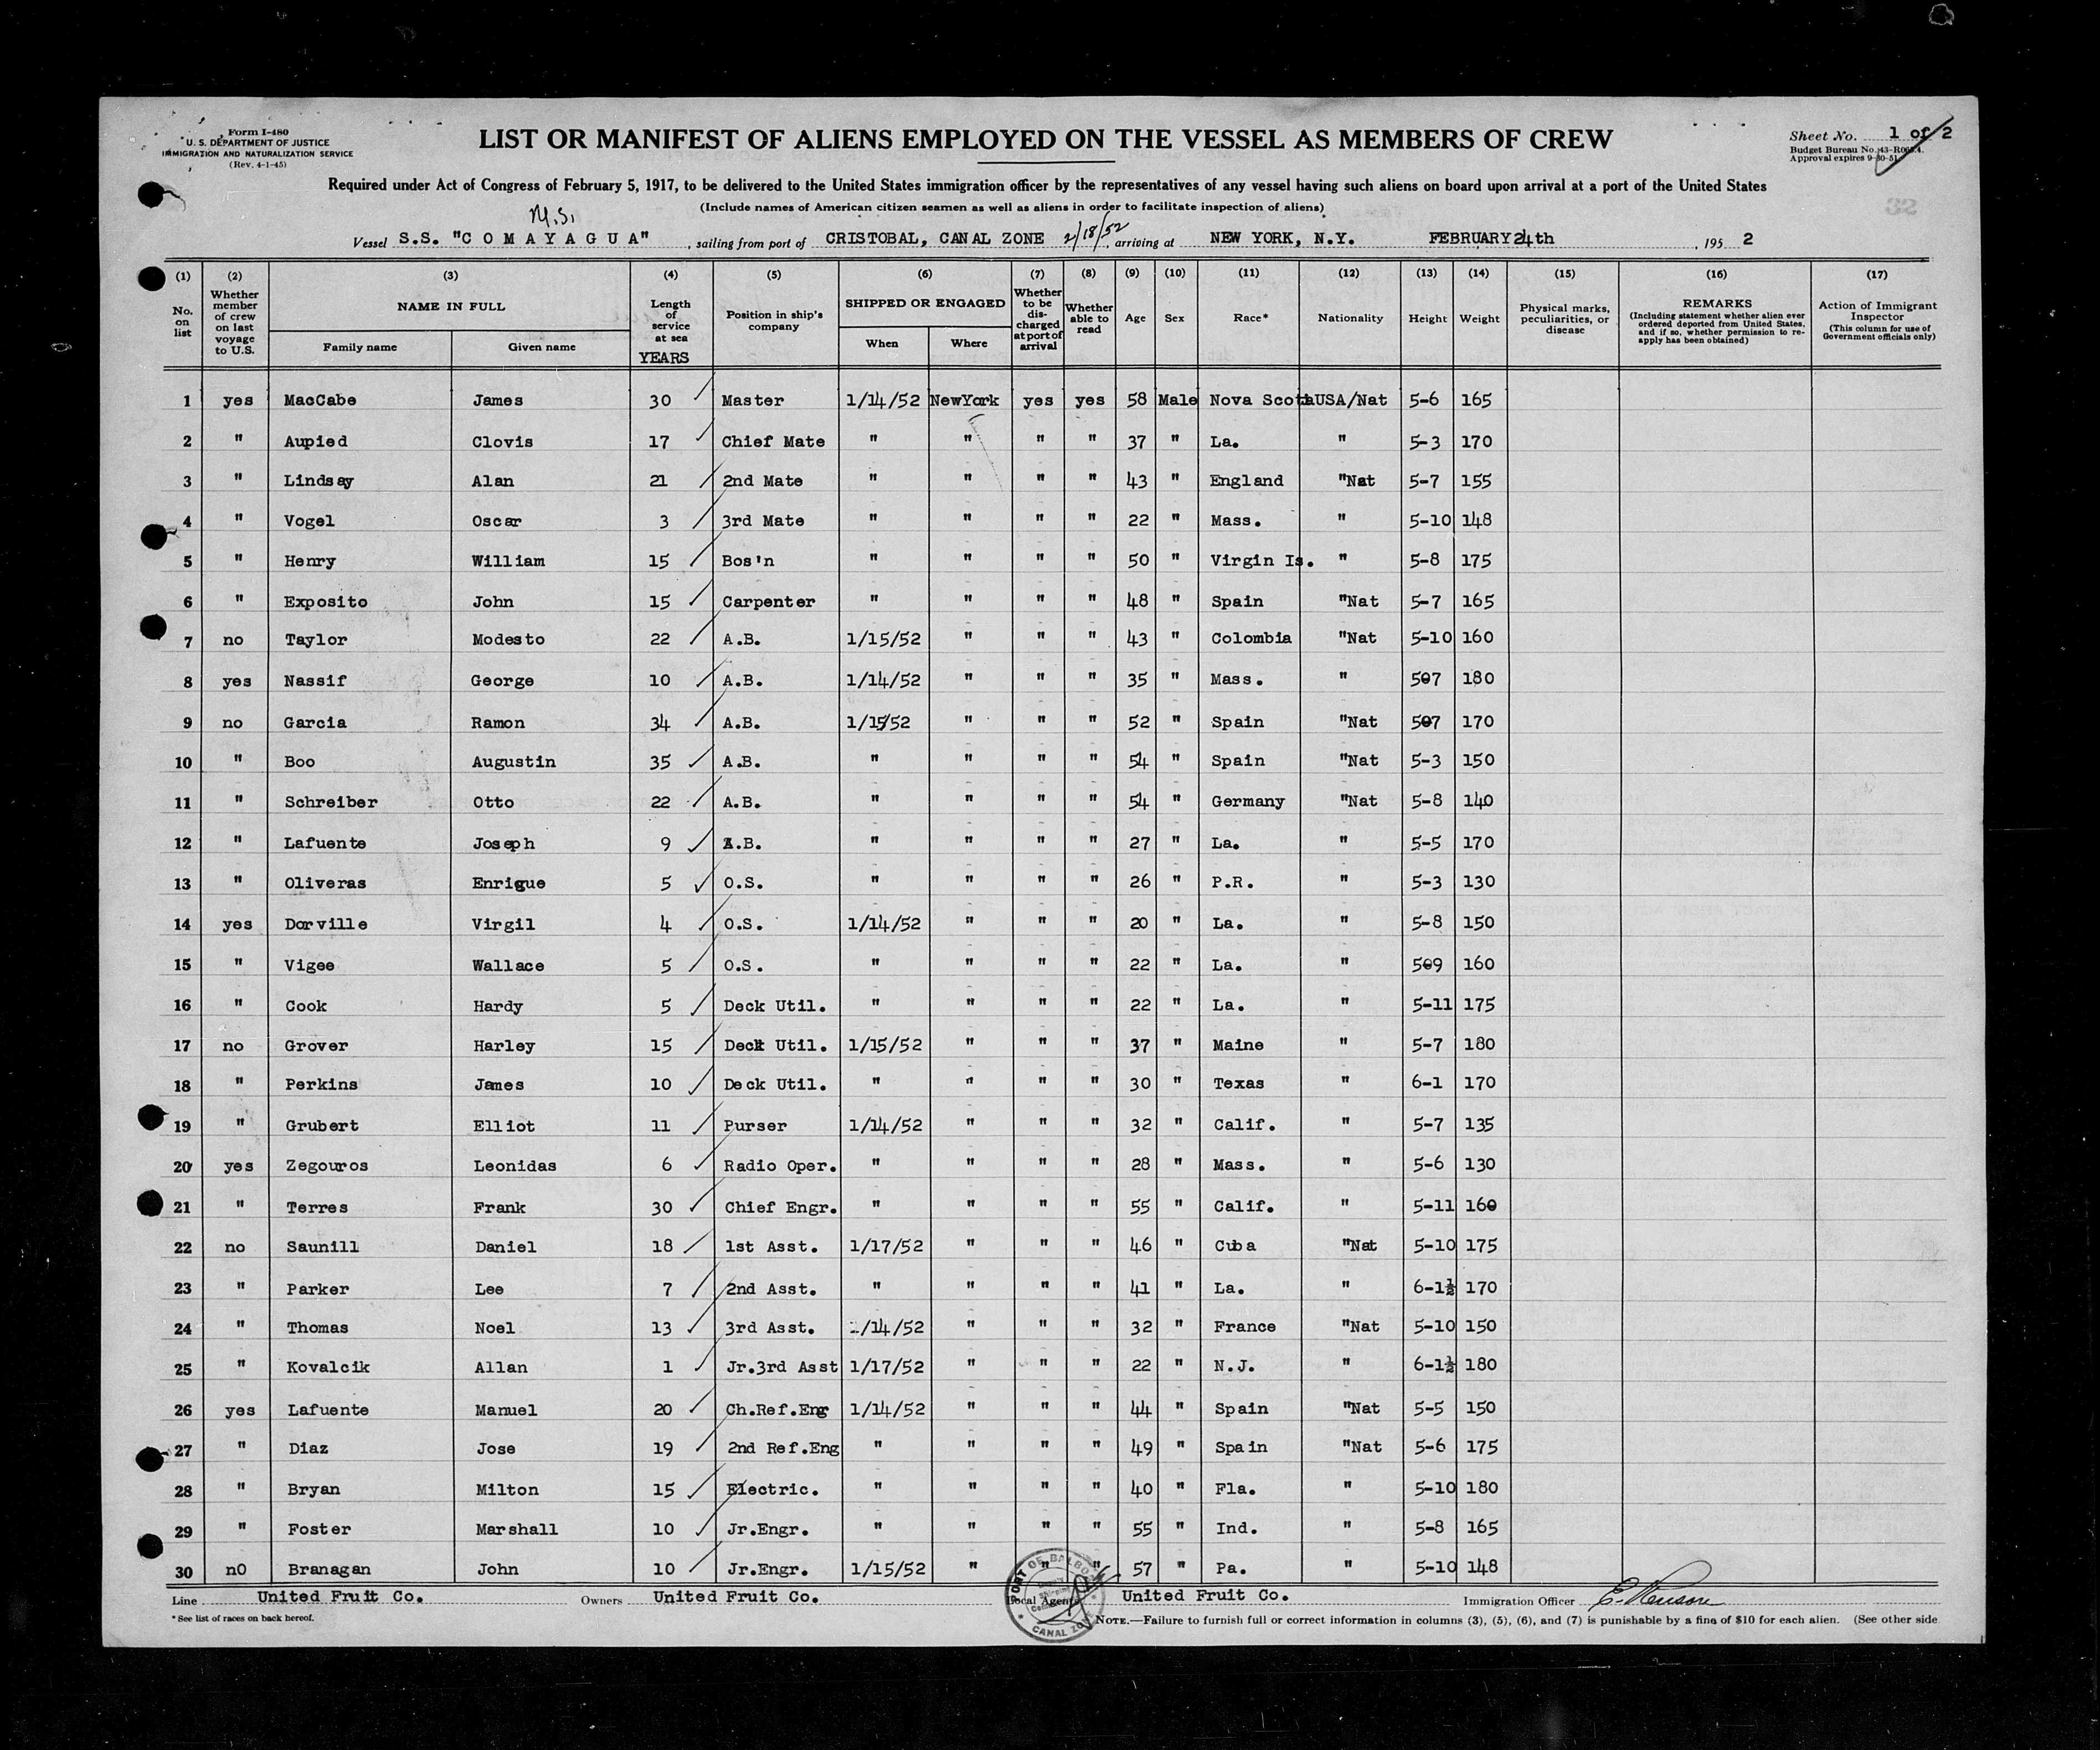 Form I-480
U. S. DEPARTMENT OF JUSTICE
IMMIGRATION AND NATURALIZATION SERVICE
(Rev. 4-1-45)
LIST OR MANIFEST OF ALIENS EMPLOYED ON THE VESSEL AS MEMBERS OF CREW
Sheet No. 1 of 2
Budget Bureau No. 43-R065.4.
Approval expires 9-30-51.
Required under Act of Congress of February 5, 1917, to be delivered to the United States immigration officer by the representatives of any vessel having such aliens on board upon arrival at a port of the United States
(Include names of American citizen seamen as well as aliens in order to facilitate inspection of aliens)
32
M.S.
Vessel S.S. "C O M A Y A G U A" , sailing from port of CRISTOBAL, CANAL ZONE 2/18/52, arriving at NEW YORK, N.Y. FEBRUARY 24th , 195 2
(1) (2) (3) (4) (5) (6) (7) (8) (9) (10) (11) (12) (13) (14) (15) (16) (17)
No. on list Whether member of crew on last voyage to U.S. NAME IN FULL Family name Given name Length of service at sea YEARS Position in ship's company SHIPPED OR ENGAGED When Where Whether to be discharged at port of arrival Whether able to read Age Sex Race* Nationality Height Weight Physical marks, peculiarities, or disease REMARKS (Including statement whether alien ever ordered deported from United States, and if so, whether permission to reapply has been obtained) Action of Immigrant Inspector (This column for use of Government officials only)
1 yes MacCabe James 30 Master 1/14/52 NewYork yes yes 58 Male Nova Scotia USA/Nat 5-6 165
2 " Aupied Clovis 17 Chief Mate " " " " 37 " La. " 5-3 170
3 " Lindsay Alan 21 2nd Mate " " " " 43 " England "Nat 5-7 155
4 " Vogel Oscar 3 3rd Mate " " " " 22 " Mass. " 5-10 148
5 " Henry William 15 Bos'n " " " " 50 " Virgin Is. " 5-8 175
6 " Exposito John 15 Carpenter " " " " 48 " Spain "Nat 5-7 165
7 no Taylor Modesto 22 A.B. 1/15/52 " " " 43 " Colombia "Nat 5-10 160
8 yes Nassif George 10 A.B. 1/14/52 " " " 35 " Mass. " 507 180
9 no Garcia Ramon 34 A.B. 1/15/52 " " " 52 " Spain "Nat 507 170
10 " Boo Augustin 35 A.B. " " " " 54 " Spain "Nat 5-3 150
11 " Schreiber Otto 22 A.B. " " " " 54 " Germany "Nat 5-8 140
12 " Lafuente Joseph 9 A.B. " " " " 27 " La. " 5-5 170
13 " Oliveras Enrigue 5 O.S. " " " " 26 " P.R. " 5-3 130
14 yes Dorville Virgil 4 O.S. 1/14/52 " " " 20 " La. " 5-8 150
15 " Vigee Wallace 5 O.S. " " " " 22 " La. " 509 160
16 " Cook Hardy 5 Deck Util. " " " " 22 " La. " 5-11 175
17 no Grover Harley 15 Deck Util. 1/15/52 " " " 37 " Maine " 5-7 180
18 " Perkins James 10 Deck Util. " " " " 30 " Texas " 6-1 170
19 " Grubert Elliot 11 Purser 1/14/52 " " " 32 " Calif. " 5-7 135
20 yes Zegouros Leonidas 6 Radio Oper. " " " " 28 " Mass. " 5-6 130
21 " Terres Frank 30 Chief Engr. " " " " 55 " Calif. " 5-11 160
22 no Saunill Daniel 18 1st Asst. 1/17/52 " " " 46 " Cuba "Nat 5-10 175
23 " Parker Lee 7 2nd Asst. " " " " 41 " La. " 6-1½ 170
24 " Thomas Noel 13 3rd Asst. 1/14/52 " " " 32 " France "Nat 5-10 150
25 " Kovalcik Allan 1 Jr.3rd Asst 1/17/52 " " " 22 " N.J. " 6-1½ 180
26 yes Lafuente Manuel 20 Ch.Ref.Eng 1/14/52 " " " 44 " Spain "Nat 5-5 150
27 " Diaz Jose 19 2nd Ref.Eng " " " " 49 " Spain "Nat 5-6 175
28 " Bryan Milton 15 Electric. " " " " 40 " Fla. " 5-10 180
29 " Foster Marshall 10 Jr.Engr. " " " " 55 " Ind. " 5-8 165
30 n0 Branagan John 10 Jr.Engr. 1/15/52 " " " 57 " Pa. " 5-10 148
Line United Fruit Co. Owners United Fruit Co. Local Agents United Fruit Co. Immigration Officer
PORT OF BALBOA
CANAL ZONE
* See list of races on back hereof.
NOTE.—Failure to furnish full or correct information in columns (3), (5), (6), and (7) is punishable by a fine of $10 for each alien. (See other side